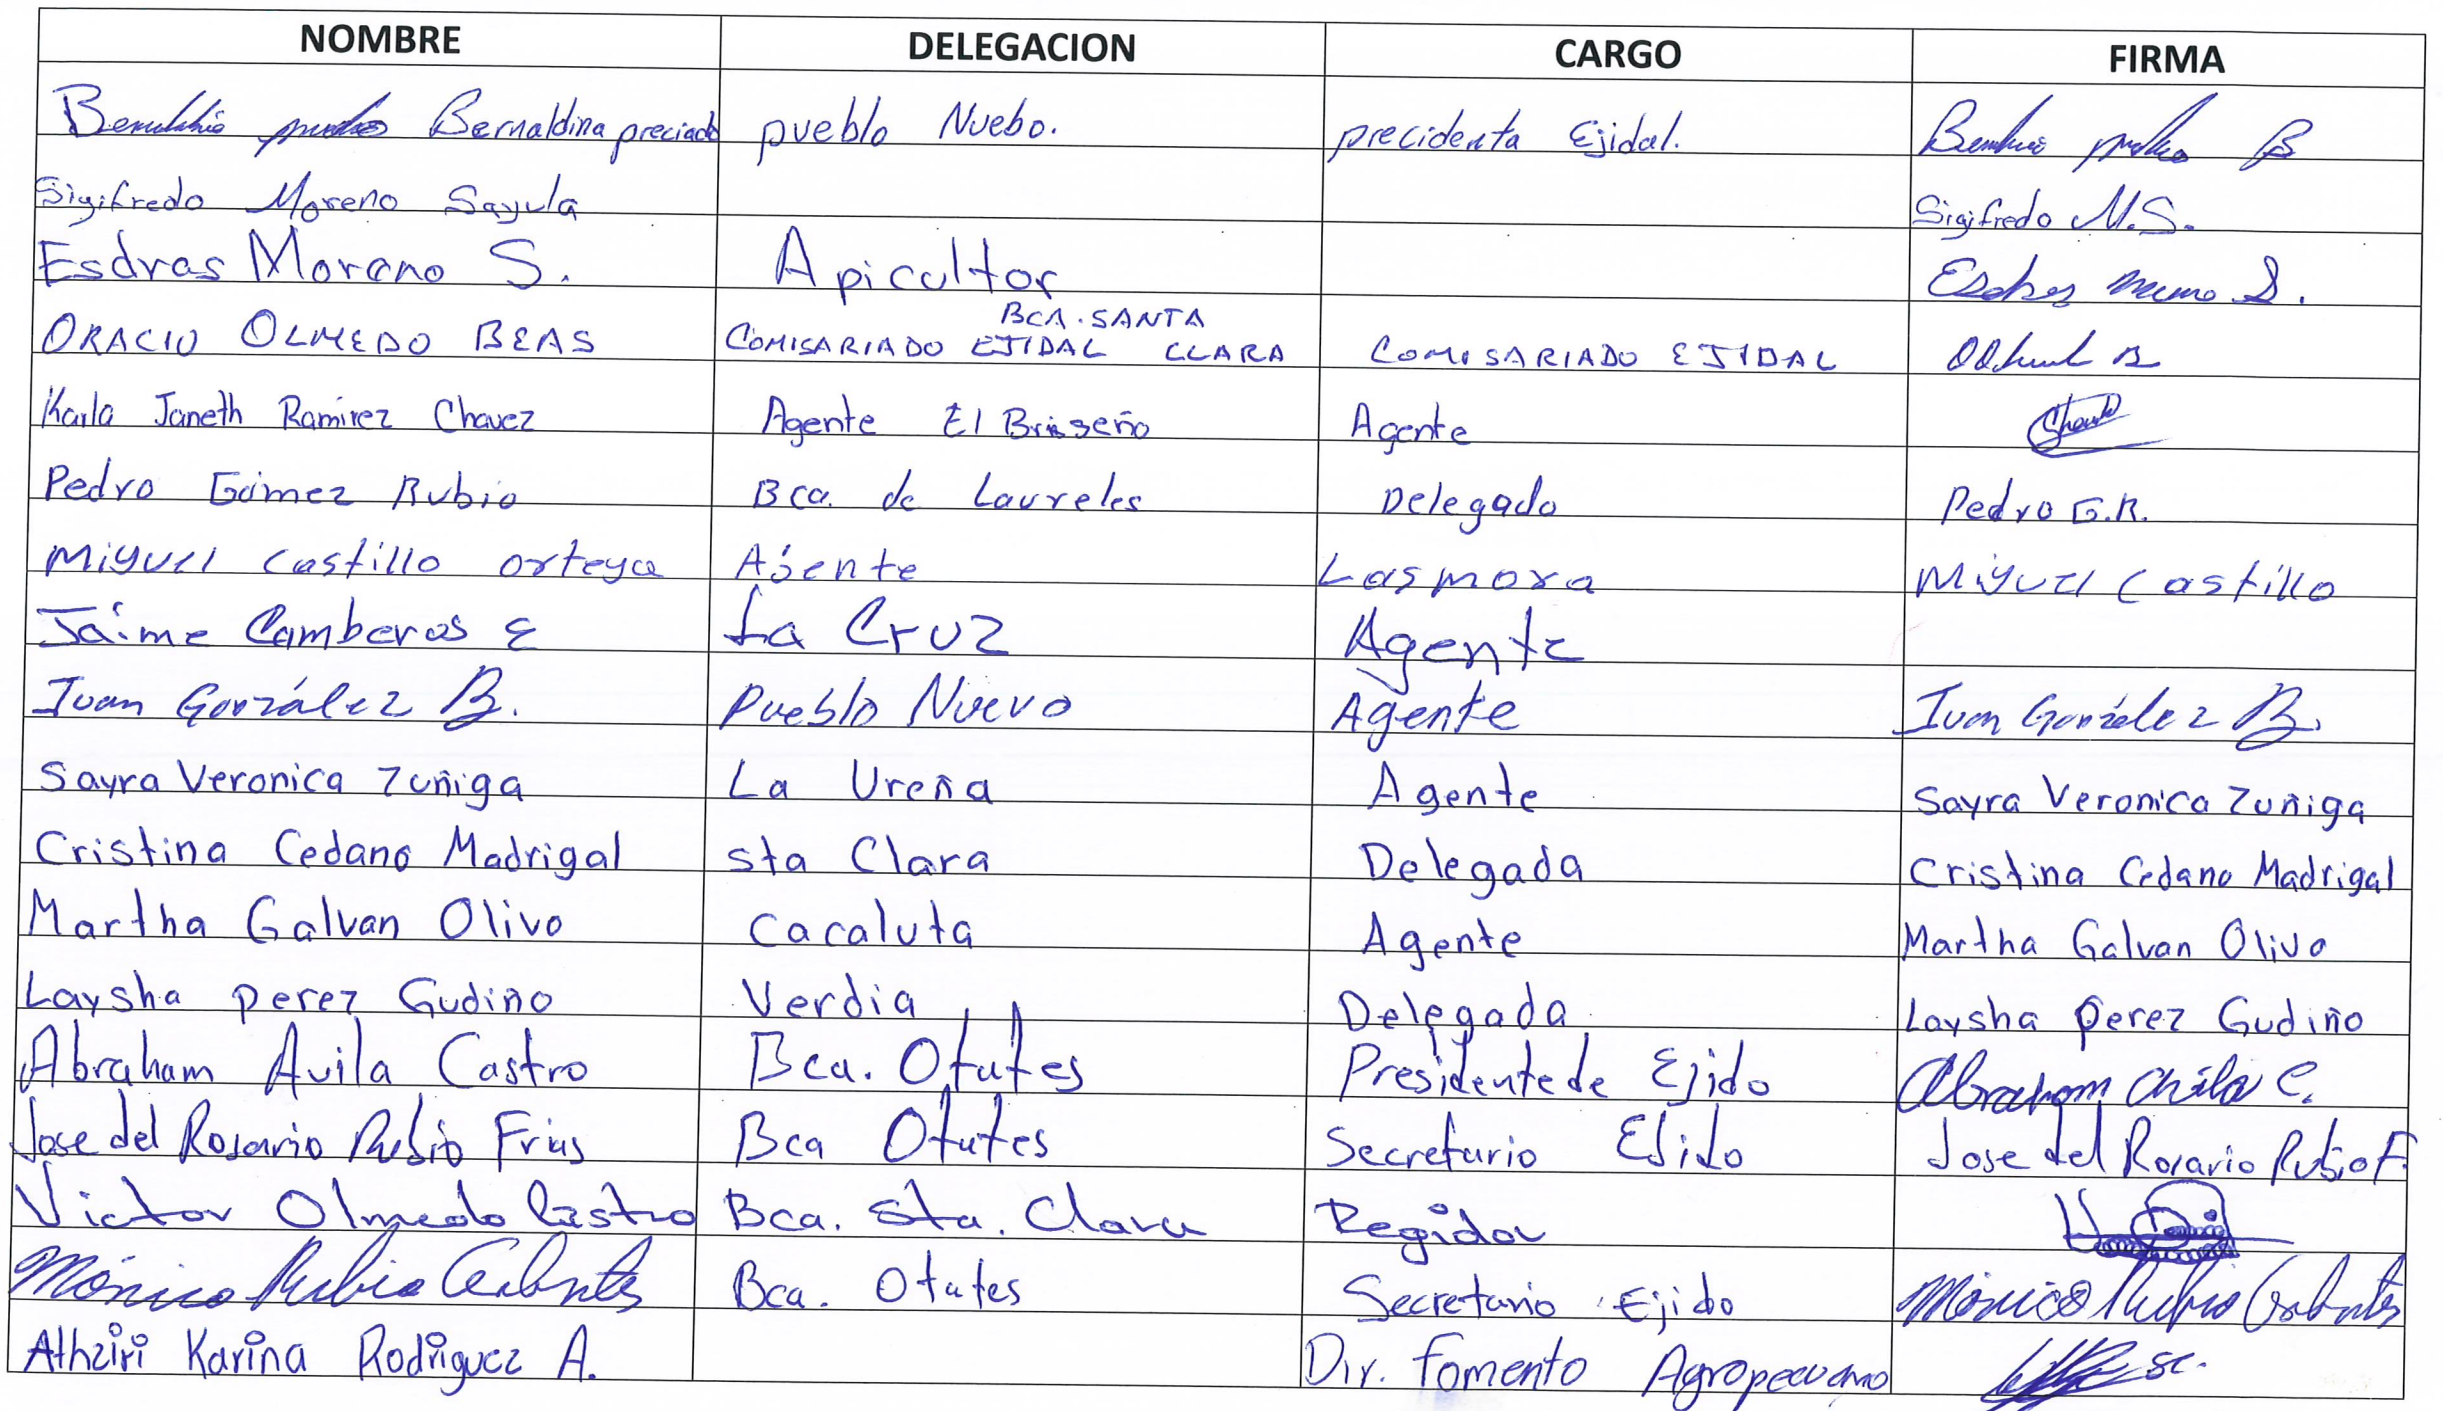 NOMBRE DELEGACION CARGO FIRMA
Bernaldina preciado pueblo Nuebo. precidenta Ejidal.
Sigifredo Moreno Sayula Sigifredo M.S.
Esdras Moreno S. Apicultor Esdras Moreno S.
BCA. SANTA
ORACIO OLMEDO BEAS COMISARIADO EJIDAL CLARA COMISARIADO EJIDAL
Karla Janeth Ramirez Chavez Agente El Briseño Agente
Pedro Gómez Rubio Bca. de Laureles Delegado Pedro G.R.
Miguel Castillo ortega Ajente Lasmora Miguel Castillo
Jaime Camberos E La Cruz Agente
Juan González B. Pueblo Nuevo Agente Juan González B.
Sayra Veronica Zuñiga La Ureña Agente Sayra Veronica Zuñiga
Cristina Cedano Madrigal sta Clara Delegada Cristina Cedano Madrigal
Martha Galvan Olivo Cacaluta Agente Martha Galvan Olivo
Laysha perez Gudiño Verdia Delegada Laysha perez Gudiño
Abraham Avila Castro Bca. Otates Presidente de Ejido Abraham Avila C.
Jose del Rosario Rubio Frias Bca Otates Secretario Ejido Jose del Rosario Rubio F
Victor Olmedo Castro Bca. Sta. Clara Regidor
Mónica Rubio Cerbantes Bca. Otates Secretario Ejido Mónica Rubio Cerbantes
Athziri Karina Rodriguez A. Dir. Fomento Agropecuario